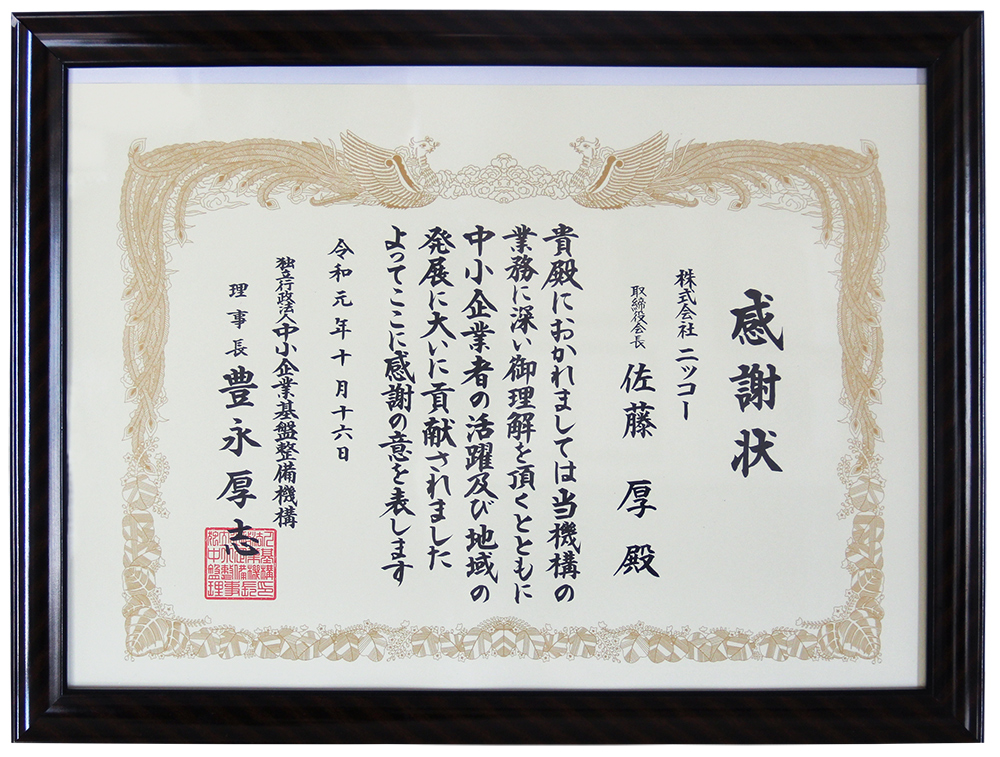 感謝状
株式会社 ニッコー
取締役会長 佐藤 厚 殿
貴殿におかれましては当機構の
業務に深い御理解を頂くとともに
中小企業者の活躍及び地域の
発展に大いに貢献されました
よってここに感謝の意を表します
令和元年十月十六日
独立行政法人 中小企業基盤整備機構
理事長 豊永厚志